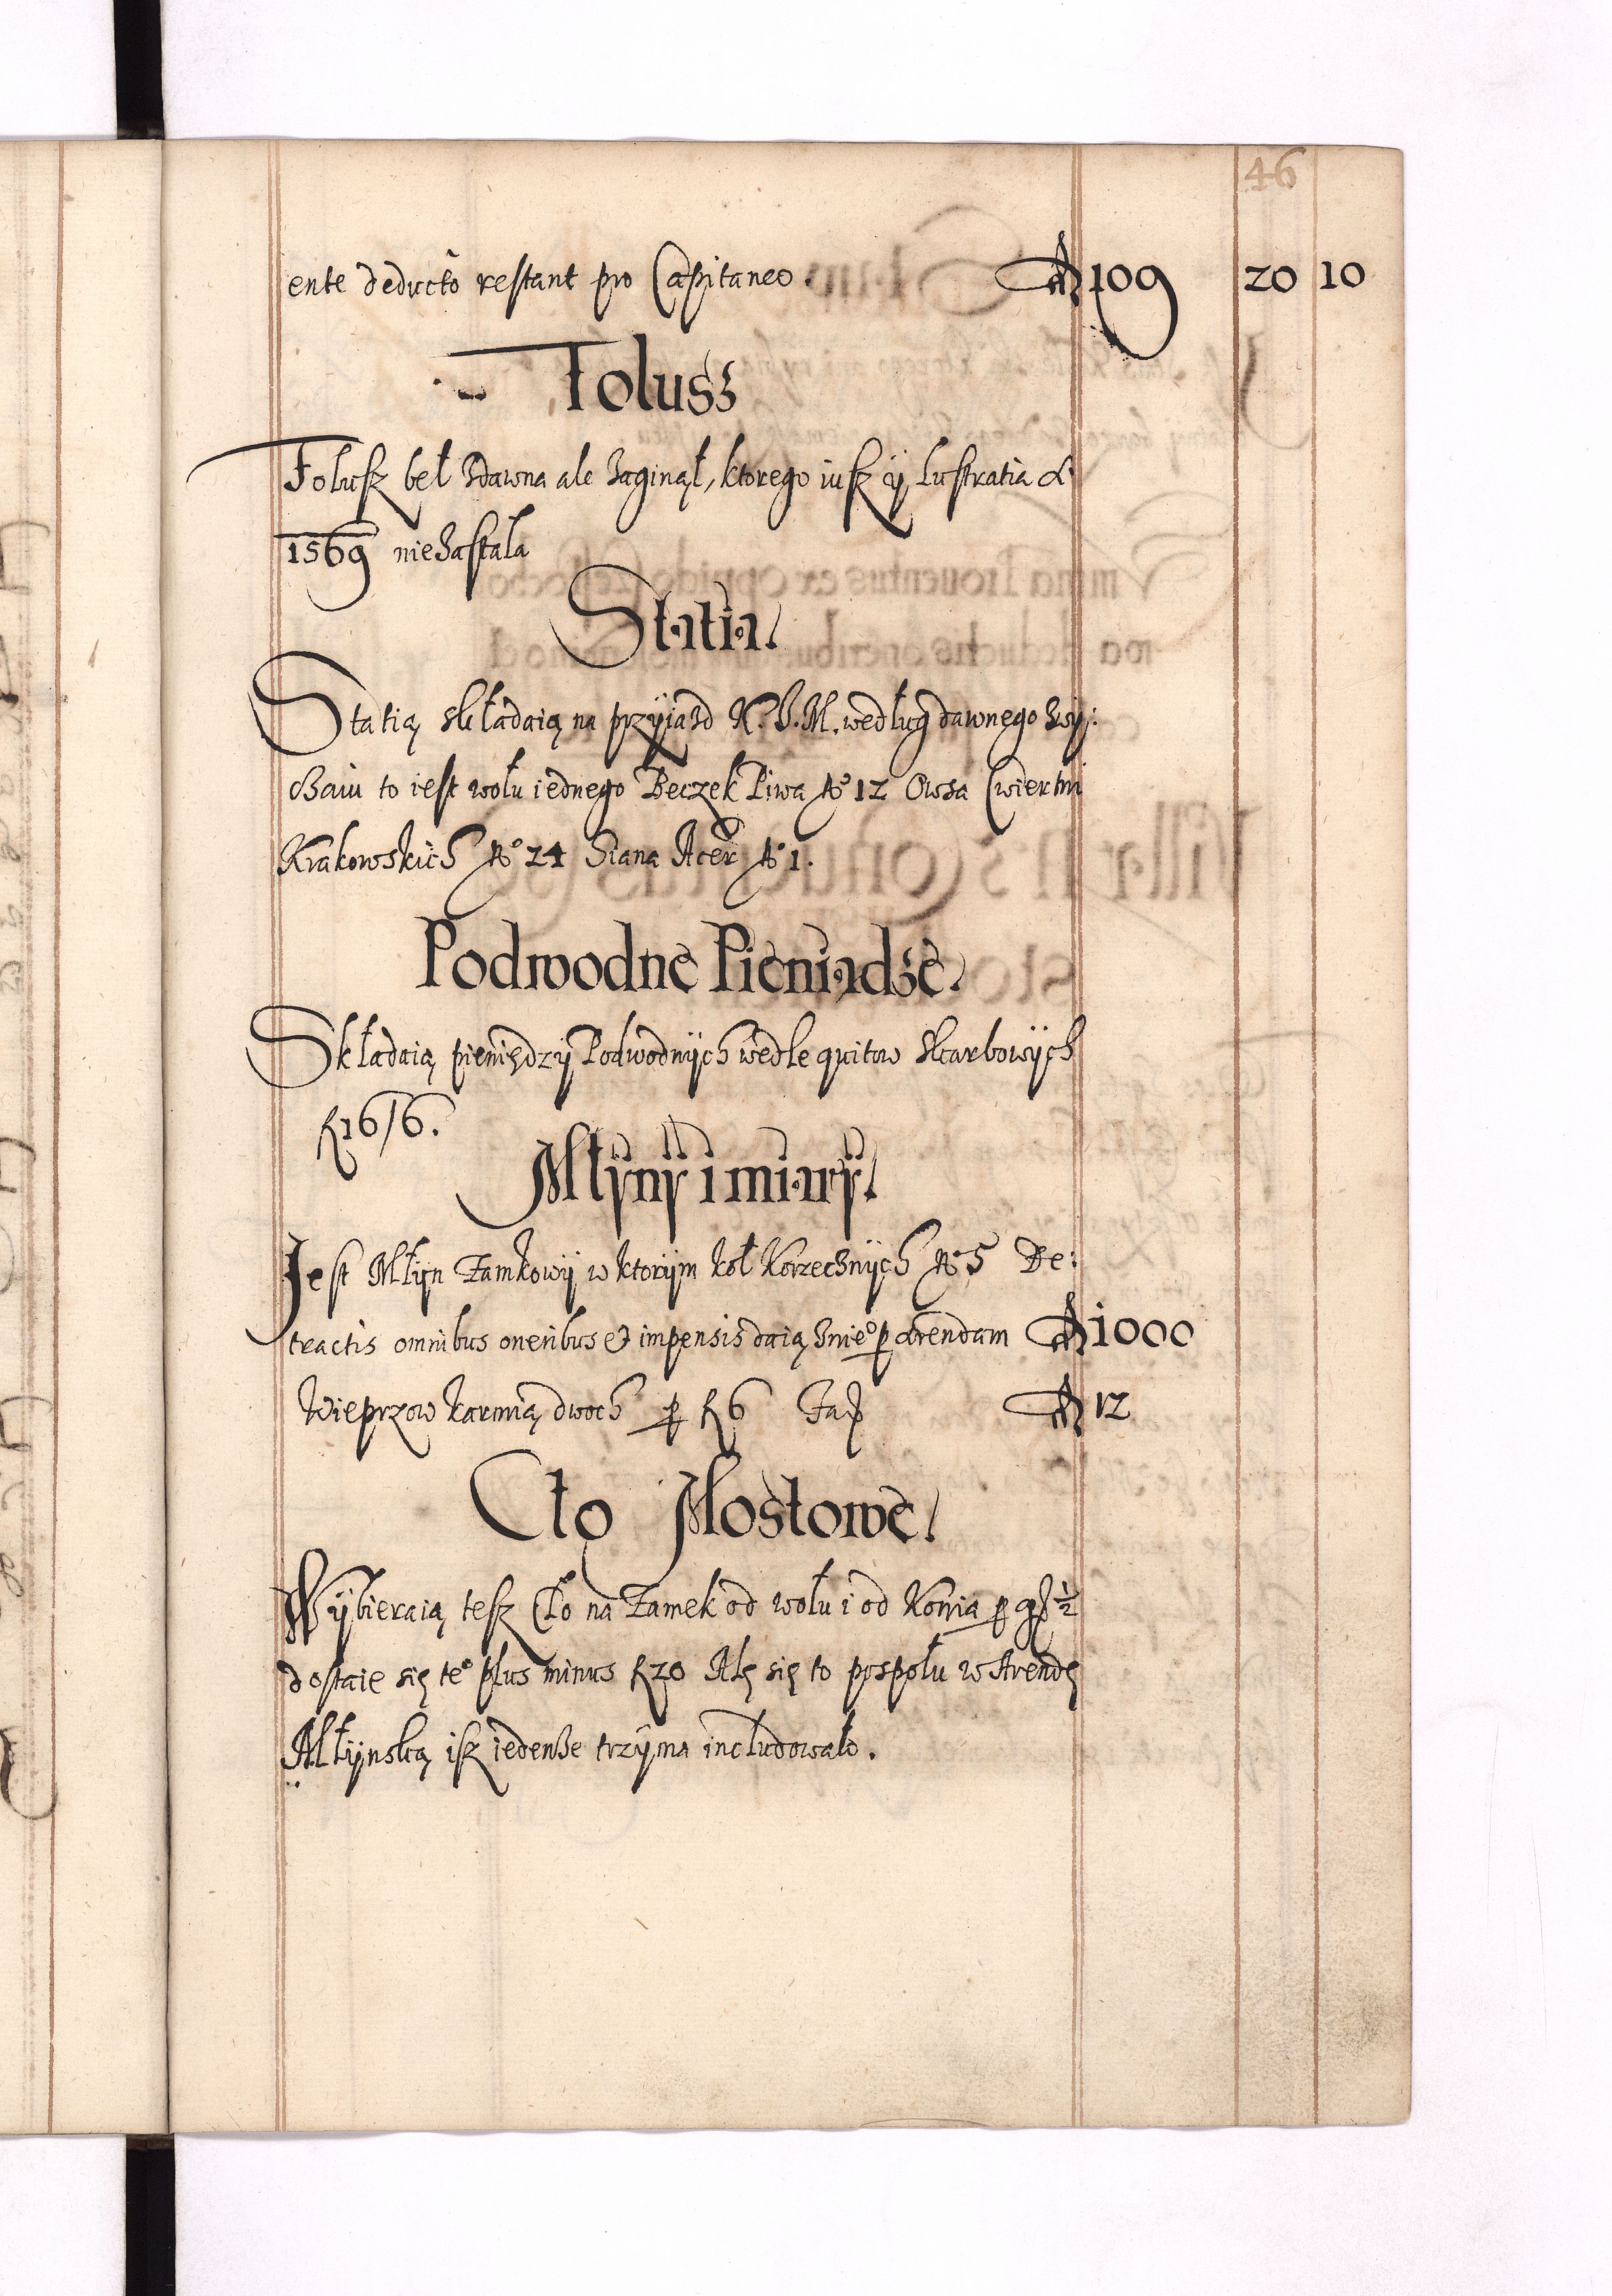 46
ente deducto restant pro Capitaneo. fl 109 20 10
Foluss
Folusz beł zdawna ale zaginął, ktorego iusz ij Lustratia A
1569 niezastała
Statia.
Statią składaią na przyiazd K. J. M. według dawnego zwy:
czaiu to iest wołu iednego Beczek Piwa No 12 Owsa Cwiertni
Krakowskich No 24 Siana Acer No 1.
Podwodne Pieniądze.
Składaią pieniędzy Podwodnych wedle quitow skarbowych
fl 16/6.
Młyny i miary.
Jest Młyn Zamkowy w ktorym koł Korzecznych No 5 De:
tractis omnibus oneribus et impensis daią znieo p arendam fl 1000
Wieprzow karmią dwoch p fl 6 Fa fl 12
Cło Mostowe.
Wybieraią tesz Cło na Zamek od wołu i od Konia p gr ½
dostaie się teo plus minus fl 20 Alę się to pospołu w Arendę
Młynską isz iedenze trzyma includowało.